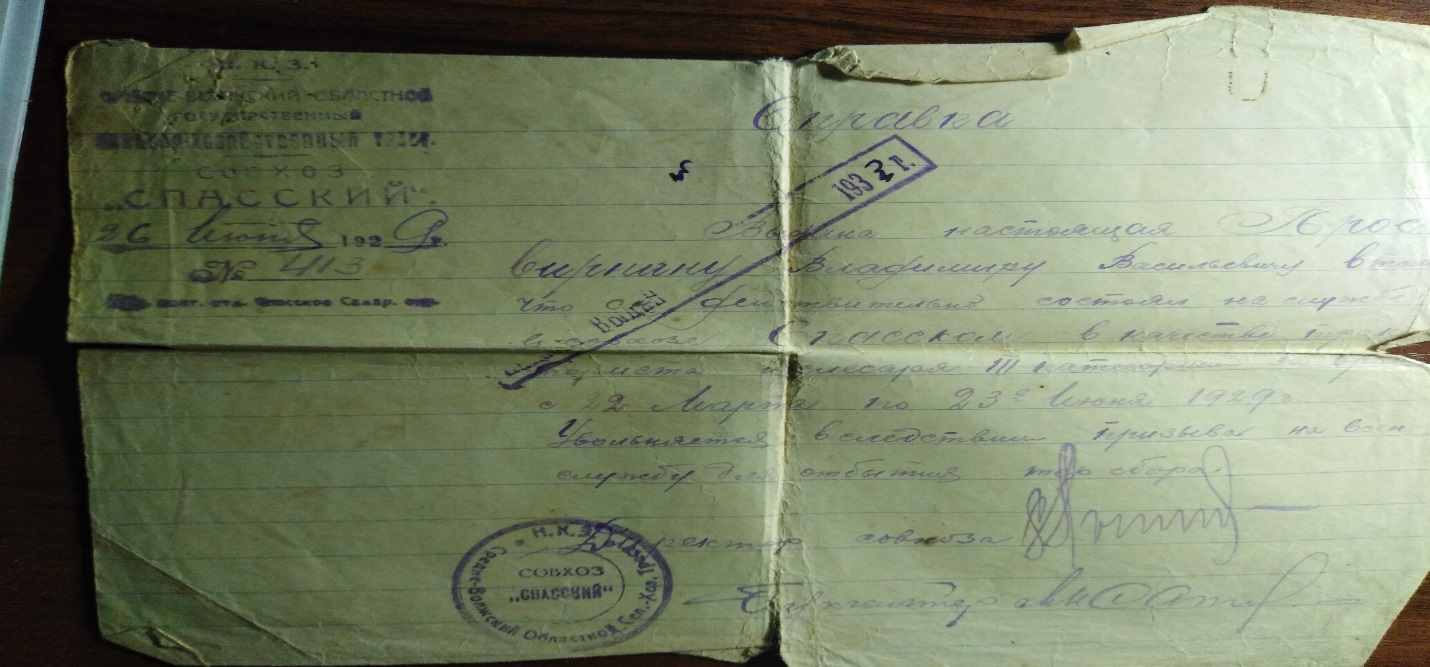 Н. К. З.
СРЕДНЕ-ВОЛЖСКИЙ ОБЛАСТНОЙ
ГОСУДАРСТВЕННЫЙ
СЕЛЬСКО-ХОЗЯЙСТВЕННЫЙ ТРЕСТ.
СОВХОЗ
„СПАССКИЙ".
26 Июня 1929 г.
№ 413
почт. отд. Спасское Самар.
Справка
193 г.
Выдана настоящая Прос
вирнину Владимиру Васильевичу в том
что он действительно состоял на службе
в совхозе Спасском в качестве
и слесаря III категории
с 22 Марта по 23е Июня 1929 г
Увольняется вследствии призыва на воен
службу для отбытия сбора
Директор совхоза
Бухгалтер
Н.К.З.
Средне-Волжский Областной Сел.-Хоз. Трест
СОВХОЗ
„СПАССКИЙ"